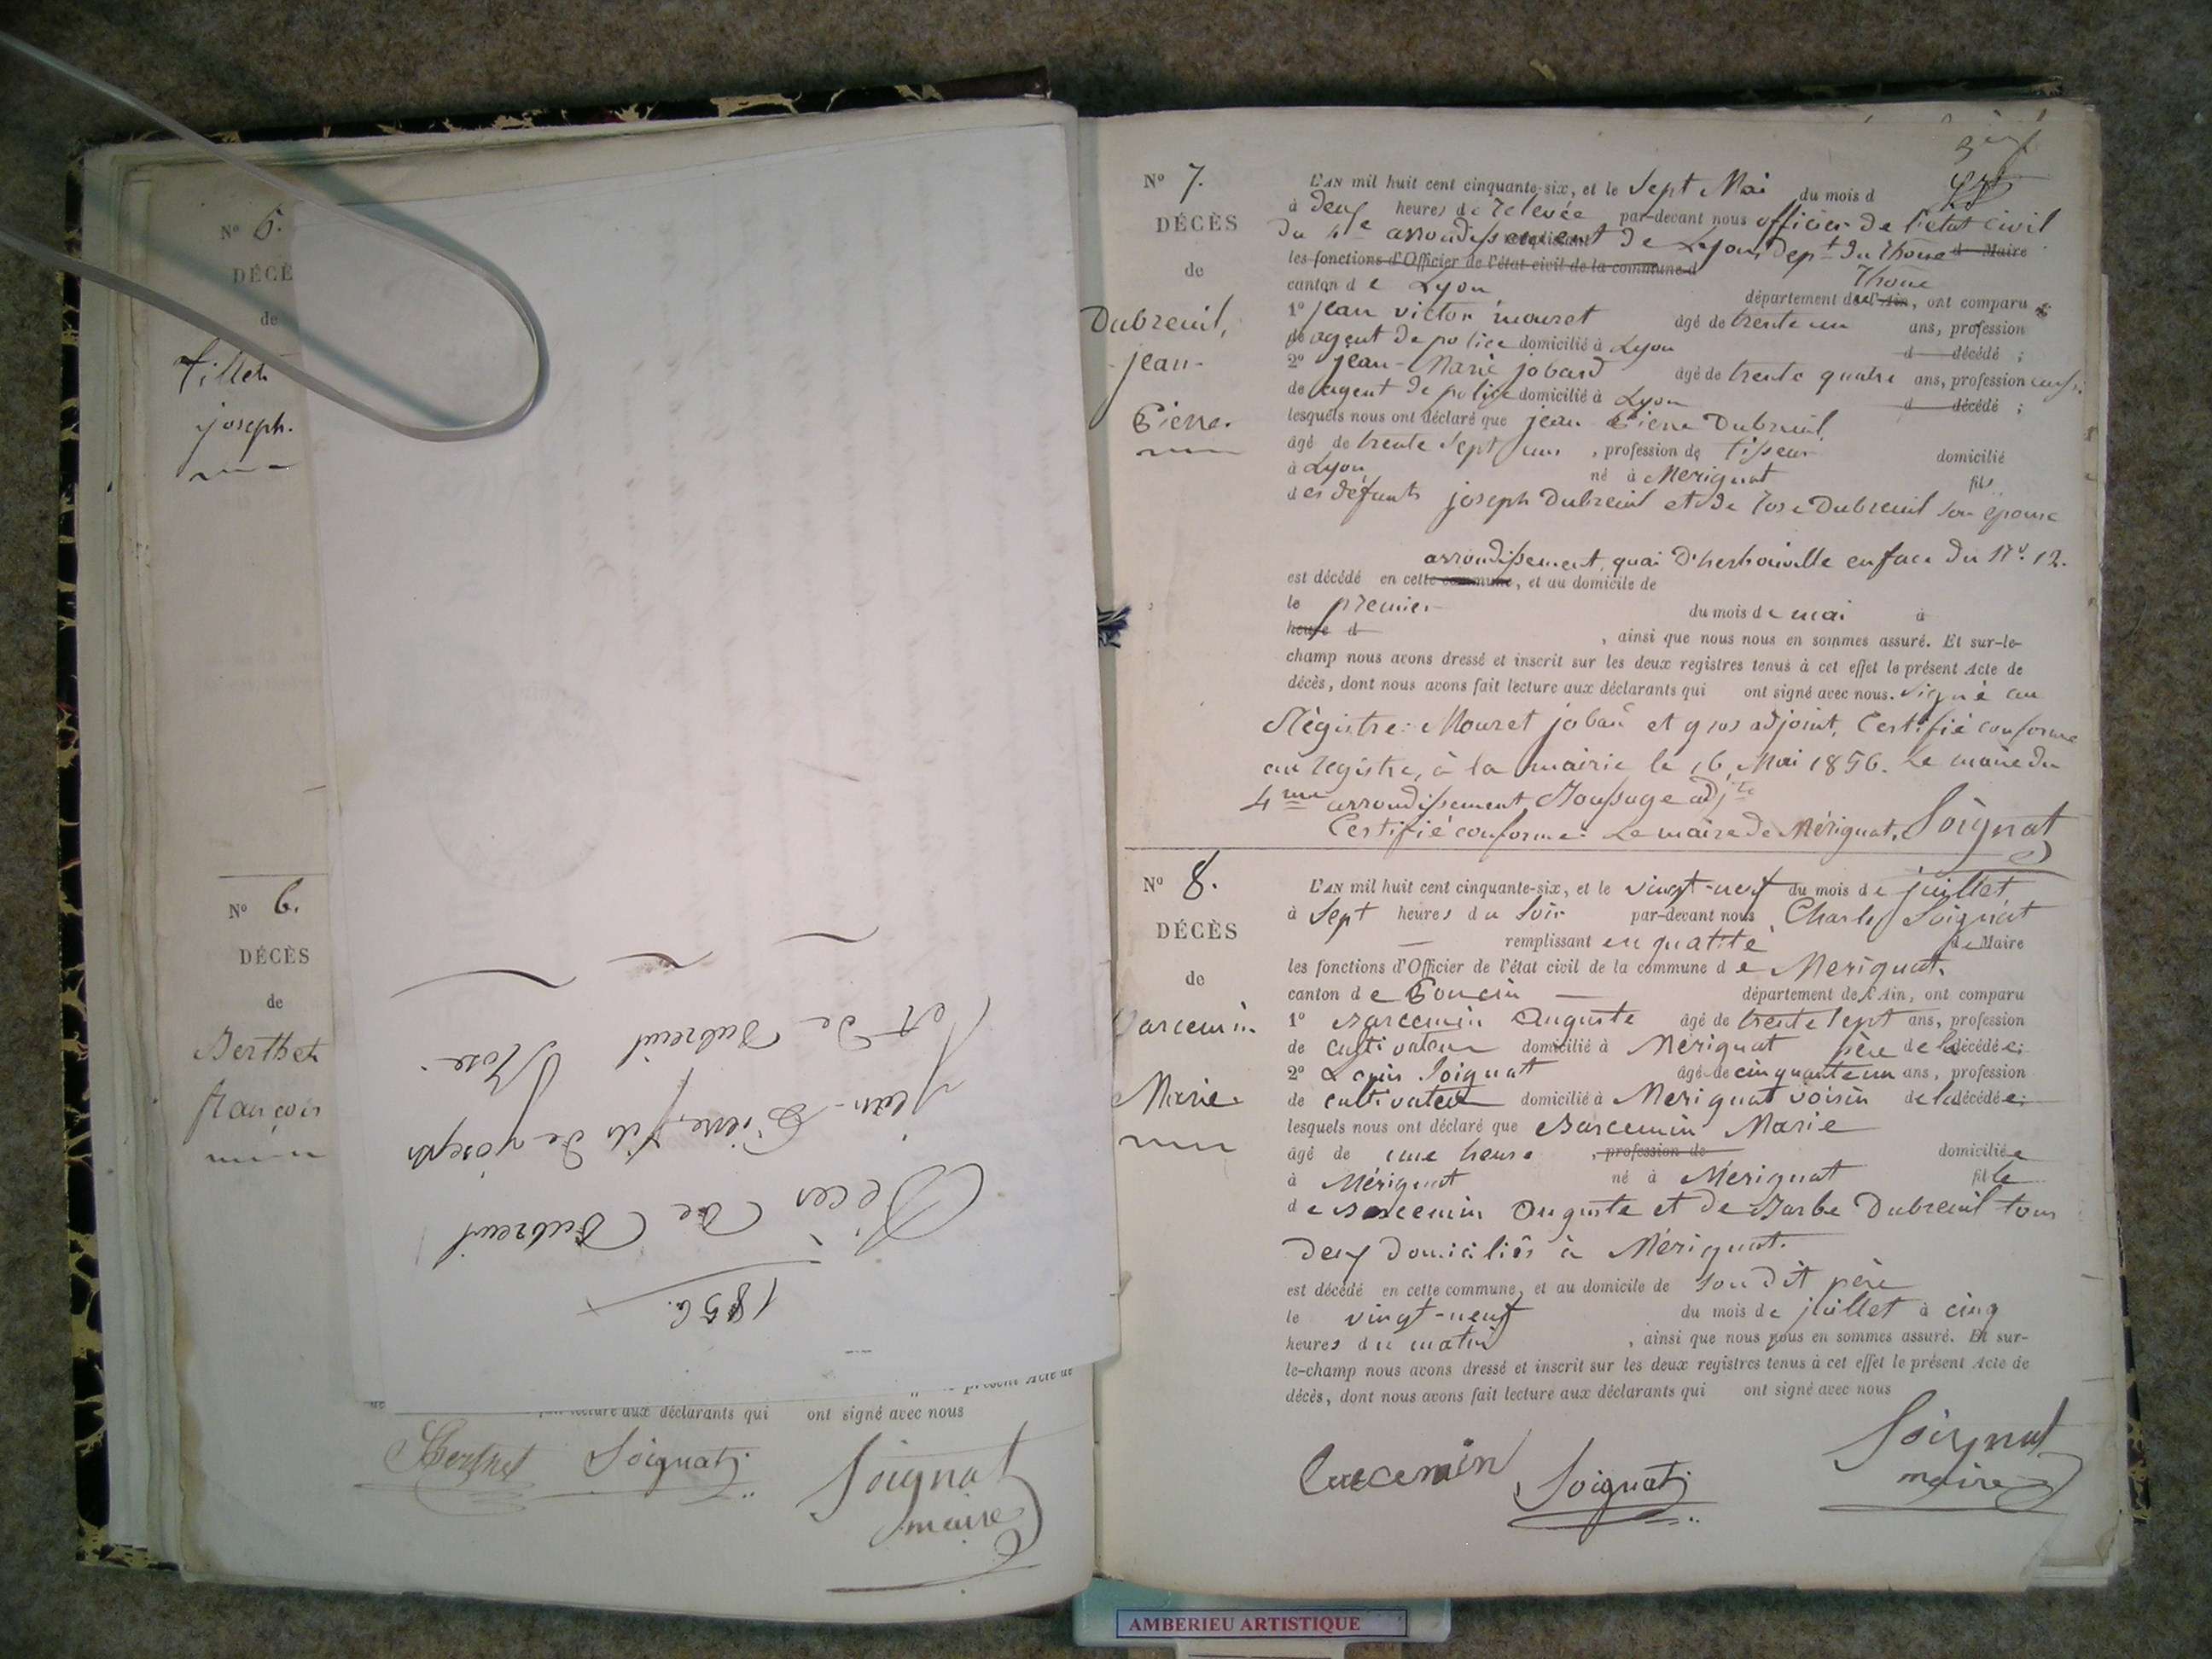 Nº 5.
DÉCÈ
de
Tillet
joseph.
Nº 6.
DÉCÈS
de
Berthet
françois
1856.
Décès de Dubreuil
jean-Pierre, fils de joseph
et de Dubreuil Rose.
présent Acte de
lecture aux déclarants qui ont signé avec nous
Berthet Soignat
Soignat
maire
Nº 7.
DÉCÈS
de
Dubreuil,
jean-
Pierre.
L'AN mil huit cent cinquante-six, et le sept Mai du mois d
à deux heures de relevée par-devant nous officier de l'état civil
du 4e arrondissement de Lyon, dept du Rhône d Maire
les fonctions d'Officier de l'état civil de la commune d
canton de Lyon Rhône
département de l'Ain, ont comparu
1º jean victor mouret âgé de trente un ans, profession
de agent de police domicilié à Lyon d décédé ;
2º jean-Marie jobard âgé de trente quatre ans, profession
de agent de police domicilié à Lyon d décédé ;
lesquels nous ont déclaré que jean Pierre Dubreuil
âgé de trente sept ans, profession de tisseur domicilié
à Lyon né à Merignat fils
des défunts joseph Dubreuil et de rose Dubreuil son épouse
arrondissement, quai D'herbouville en face du Nº. 12.
est décédé en cette commune, et au domicile de
le premier du mois de mai à
heure d , ainsi que nous nous en sommes assuré. Et sur-le-
champ nous avons dressé et inscrit sur les deux registres tenus à cet effet le présent Acte de
décès, dont nous avons fait lecture aux déclarants qui ont signé avec nous. signé au
Régistre: Mouret jobard et gros adjoint, Certifié conforme
au registre, à la mairie le 16 Mai 1856. Le maire du
4me arrondissement
Certifié conforme: Le maire de Mérignat, Soignat
Nº 8.
DÉCÈS
de
Marie.
L'AN mil huit cent cinquante-six, et le vingt-neuf du mois de juillet
à sept heures du soir par-devant nous Charles Soignat
remplissant en qualité de Maire
les fonctions d'Officier de l'état civil de la commune de Merignat.
canton de Poncin département de l'Ain, ont comparu
1º Auguste âgé de trente sept ans, profession
de cultivateur domicilié à Mérignat père de la décédée;
2º Louis Soignat âgé de cinquante un ans, profession
de cultivateur domicilié à Merignat voisin de la décédée;
lesquels nous ont déclaré que Marie
âgé de une heure , profession de domiciliée
à Mérignat né à Mérignat fille
de Auguste et de Barbe Dubreuil tous
deux domiciliés à Mérignat.
est décédé en cette commune, et au domicile de son dit père
le vingt-neuf du mois de juillet à cinq
heures du matin , ainsi que nous nous en sommes assuré. Et sur-
le-champ nous avons dressé et inscrit sur les deux registres tenus à cet effet le présent Acte de
décès, dont nous avons fait lecture aux déclarants qui ont signé avec nous
Soignat
Soignat
maire
AMBERIEU ARTISTIQUE